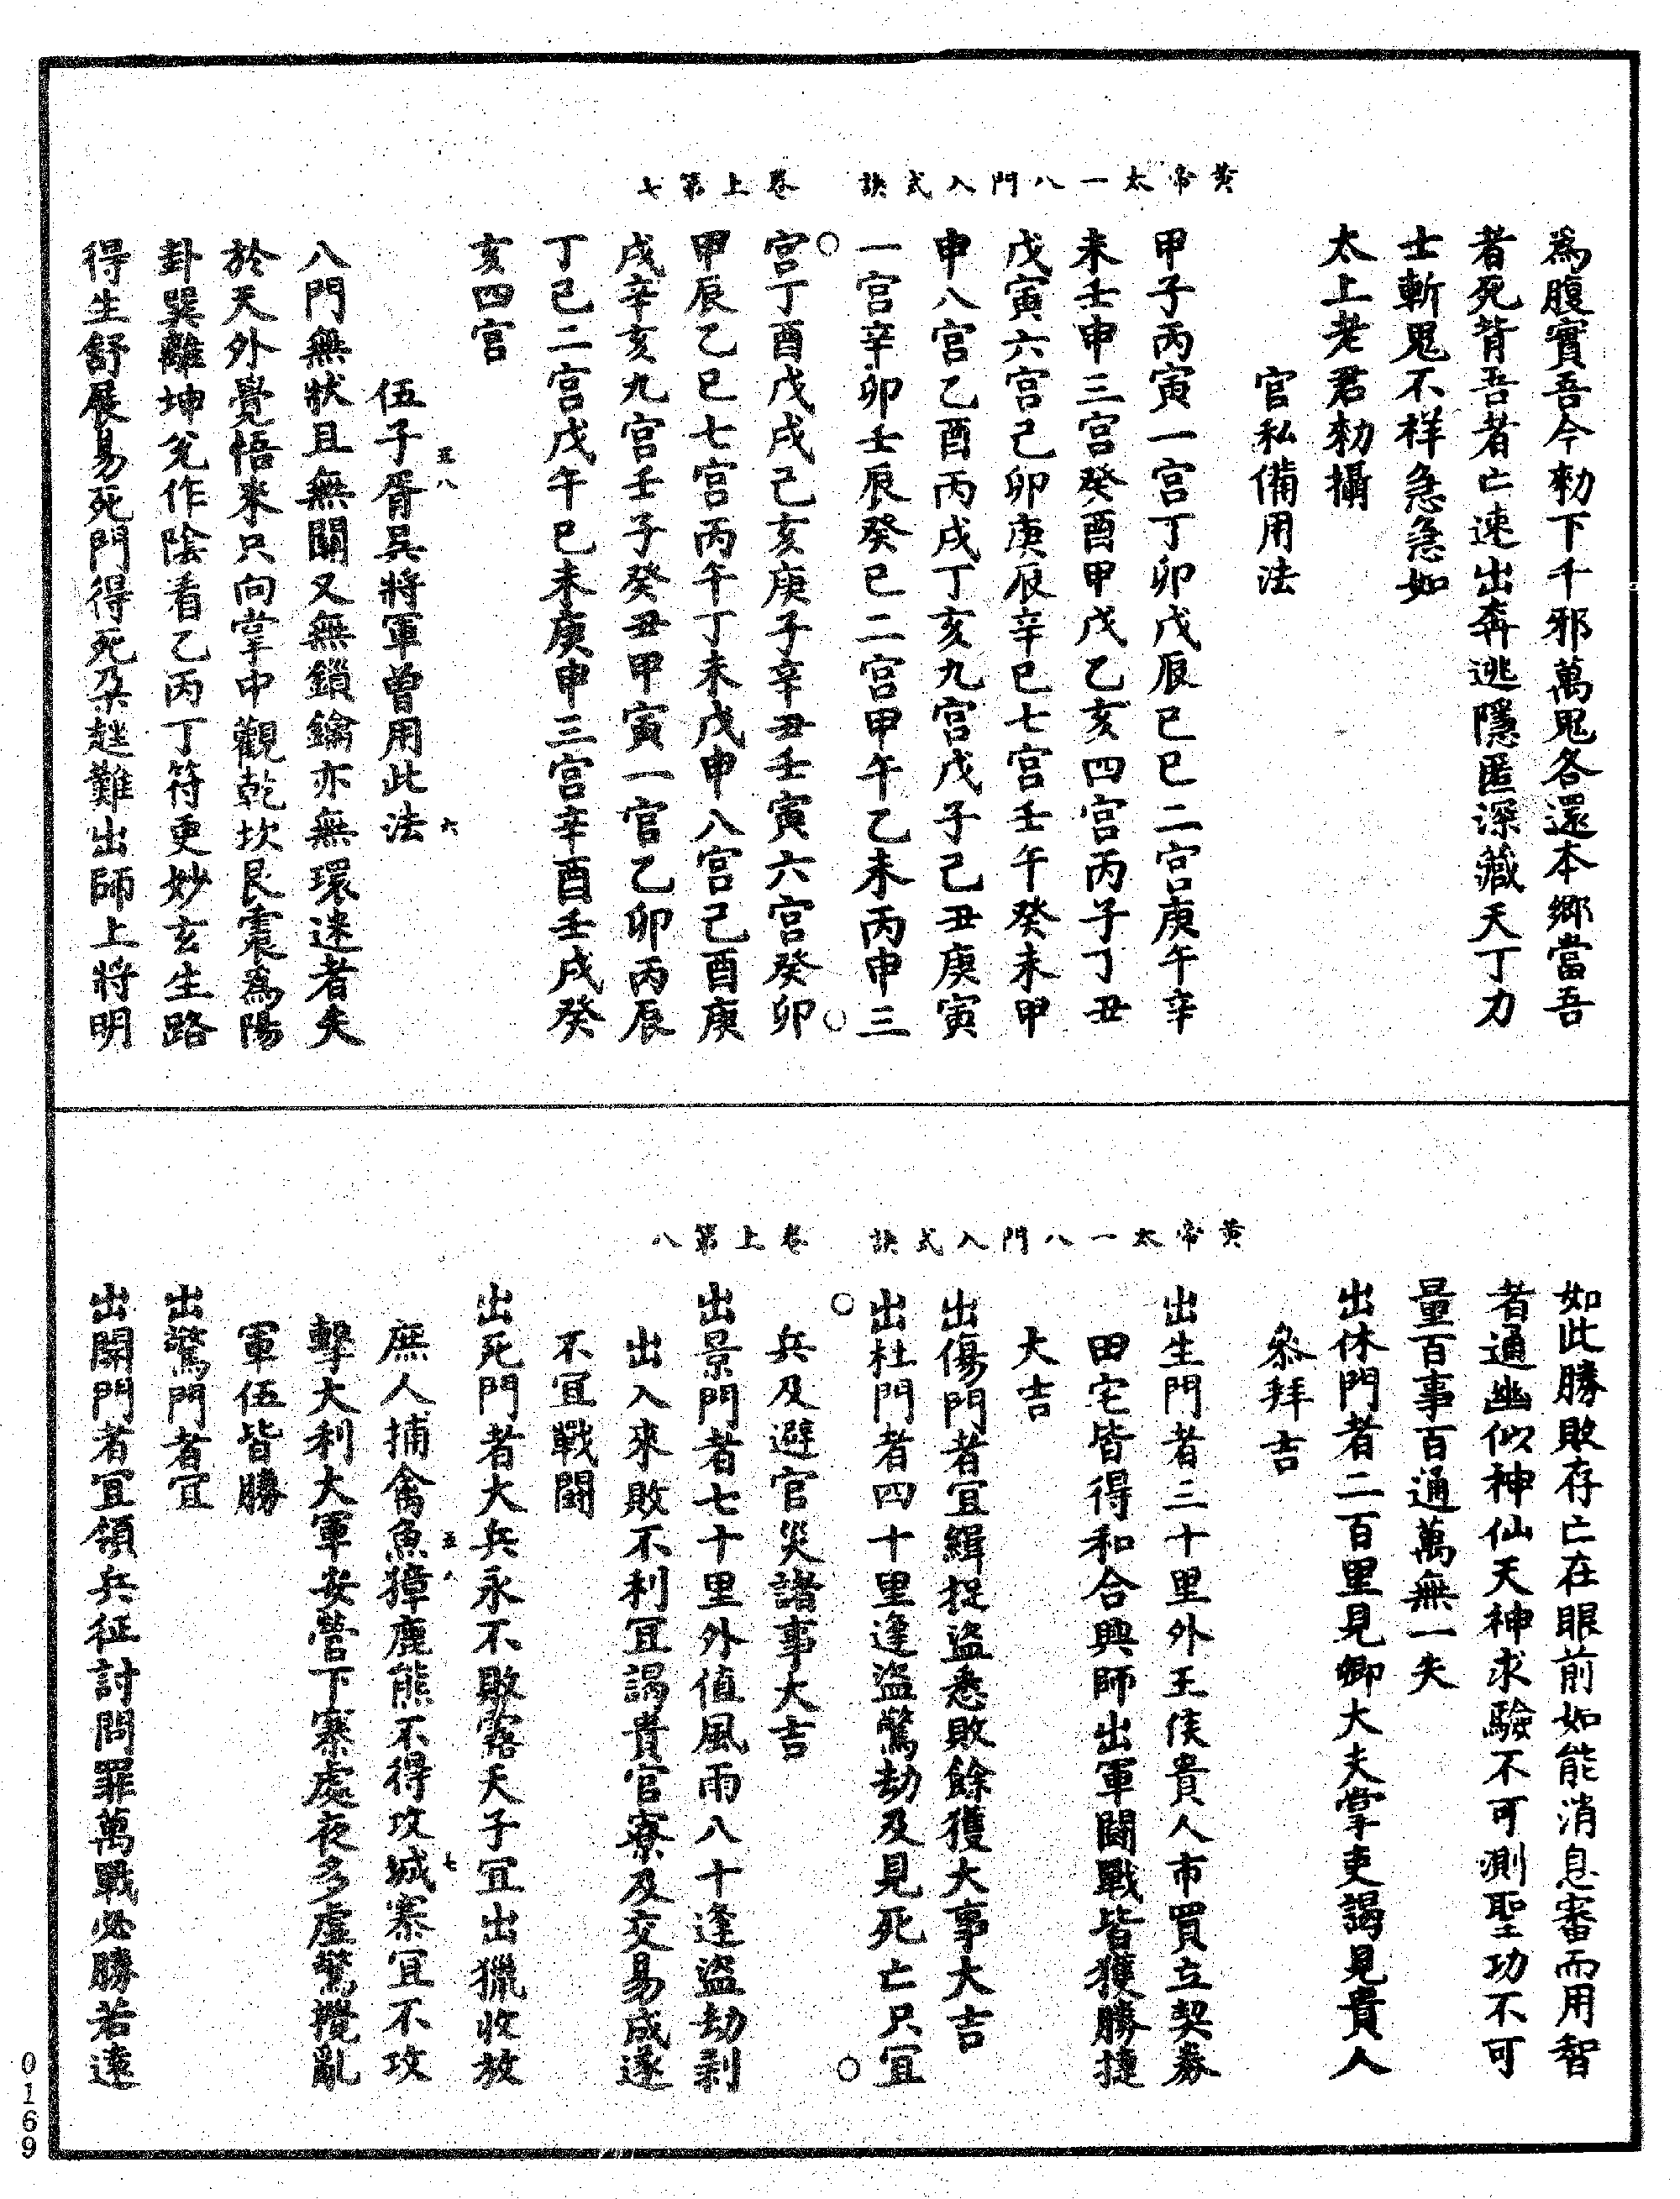 黃帝太一八門入式訣　卷上第七
為腹實吾今勑下千邪萬鬼各還本鄉當吾
者死背吾者亡速出奔逃隱匿深藏天丁力
士斬鬼不祥急急如
太上老君勑攝
官私備用法
甲子丙寅一宮丁卯戊辰己巳二宮庚午辛
未壬申三宮癸酉甲戌乙亥四宮丙子丁丑
戊寅六宮己卯庚辰辛巳七宮壬午癸未甲
申八宮乙酉丙戌丁亥九宮戊子己丑庚寅
一宮辛卯壬辰癸巳二宮甲午乙未丙申三
宮丁酉戊戌己亥庚子辛丑壬寅六宮癸卯
甲辰乙巳七宮丙午丁未戊申八宮己酉庚
戌辛亥九宮壬子癸丑甲寅一宮乙卯丙辰
丁巳二宮戊午己未庚申三宮辛酉壬戌癸
亥四宮
伍子胥吳將軍曾用此法
五八　六
八門無狀且無關又無鎖鑰亦無環迷者失
於天外覺悟來只向掌中觀乾坎艮震為陽
卦巽離坤兌作陰看乙丙丁符更妙玄生路
得生舒展易死門得死朶趂難出師上將明
黃帝太一八門入式訣　卷上第八
如此勝敗存亡在眼前如能消息審而用智
者通幽似神仙天神求驗不可測聖功不可
量百事百通萬無一失
出休門者二百里見卿大夫掌吏謁見貴人
叅拜吉
出生門者三十里外王侯貴人市買立契券
田宅皆得和合興師出軍鬬戰皆獲勝捷
大吉
出傷門者宜緝捉盜悉敗餘獲大事大吉
出杜門者四十里逢盜驚劫及見死亡只宜
兵及避官災諸事大吉
出景門者七十里外值風雨八十逢盜劫剥
出入來敗不利宜謁貴官寮及交易成遂
不宜戰鬬
出死門者大兵永不敗露天子宜出獵收放
庶人捕禽魚獐鹿熊不得攻城寨宜不攻
五八　七
擊大利大軍安營下寨處夜多虛驚攪亂
軍伍皆勝
出驚門者宜
出開門者宜領兵征討問罪萬戰必勝若遠
0169